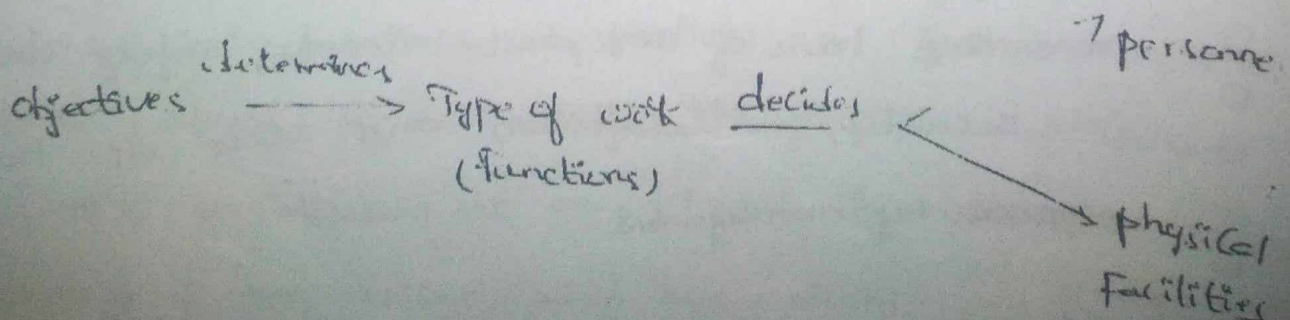 objectives determines Type of work decides
(functions)
personne
physical
Facilities